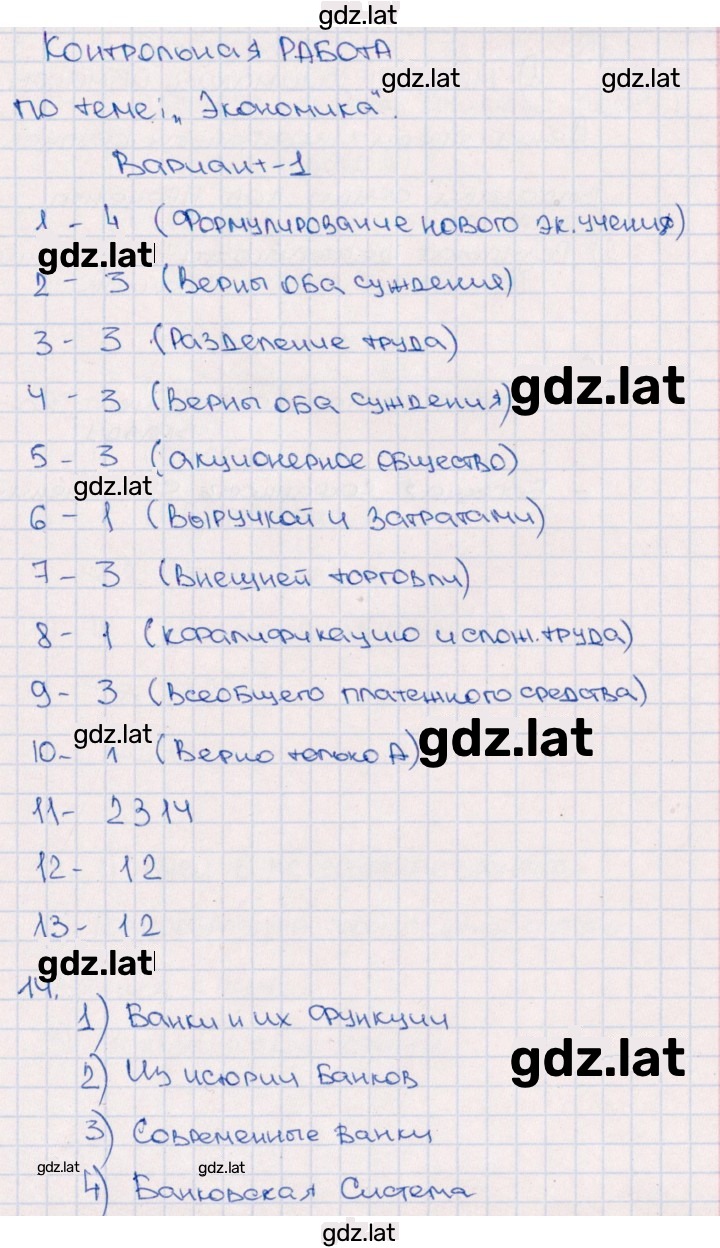 gdz.lat
Контрольная РАБОТА
gdz.lat gdz.lat
по теме: „Экономика“.
Вариант-1
1 - 4 (Формулирование нового эк. учения)
gdz.lat
2 - 3 (Верны оба суждения)
3 - 3 (Разделение труда)
4 - 3 (Верны оба суждения) gdz.lat
5 - 3 (акционерное общество)
gdz.lat
6 - 1 (Выручкой и затратами)
7 - 3 (Внешней торговли)
8 - 1 (кофалификацию и слож. труда)
9 - 3 (Всеобщего платежного средства)
10 - 1 (Верно только А) gdz.lat gdz.lat
11 - 2314
12 - 12
13 - 12
gdz.lat
14.
1) Банки и их функции
gdz.lat
2) Из истории Банков
3) Современные Банки
gdz.lat gdz.lat
4) Банковская Система
gdz.lat